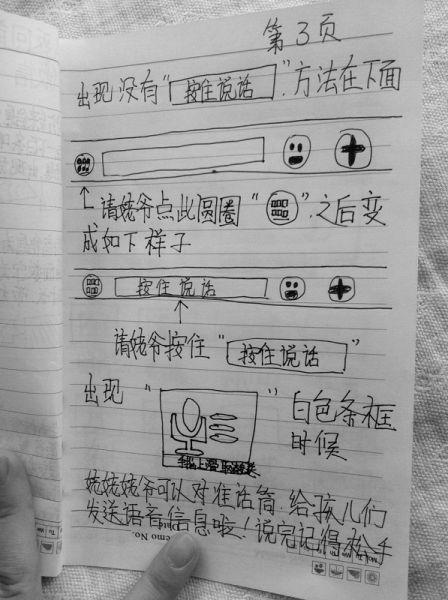 第3页
出现没有"按住说话".方法在下面
请姥爷点此圆圈"".之后变
成如下样子
按住说话
请姥爷按住"按住说话"
出现""白色条框
时候
姥姥姥爷可以对准话筒.给孩儿们
发送语音信息啦!说完记得松手
emo No.